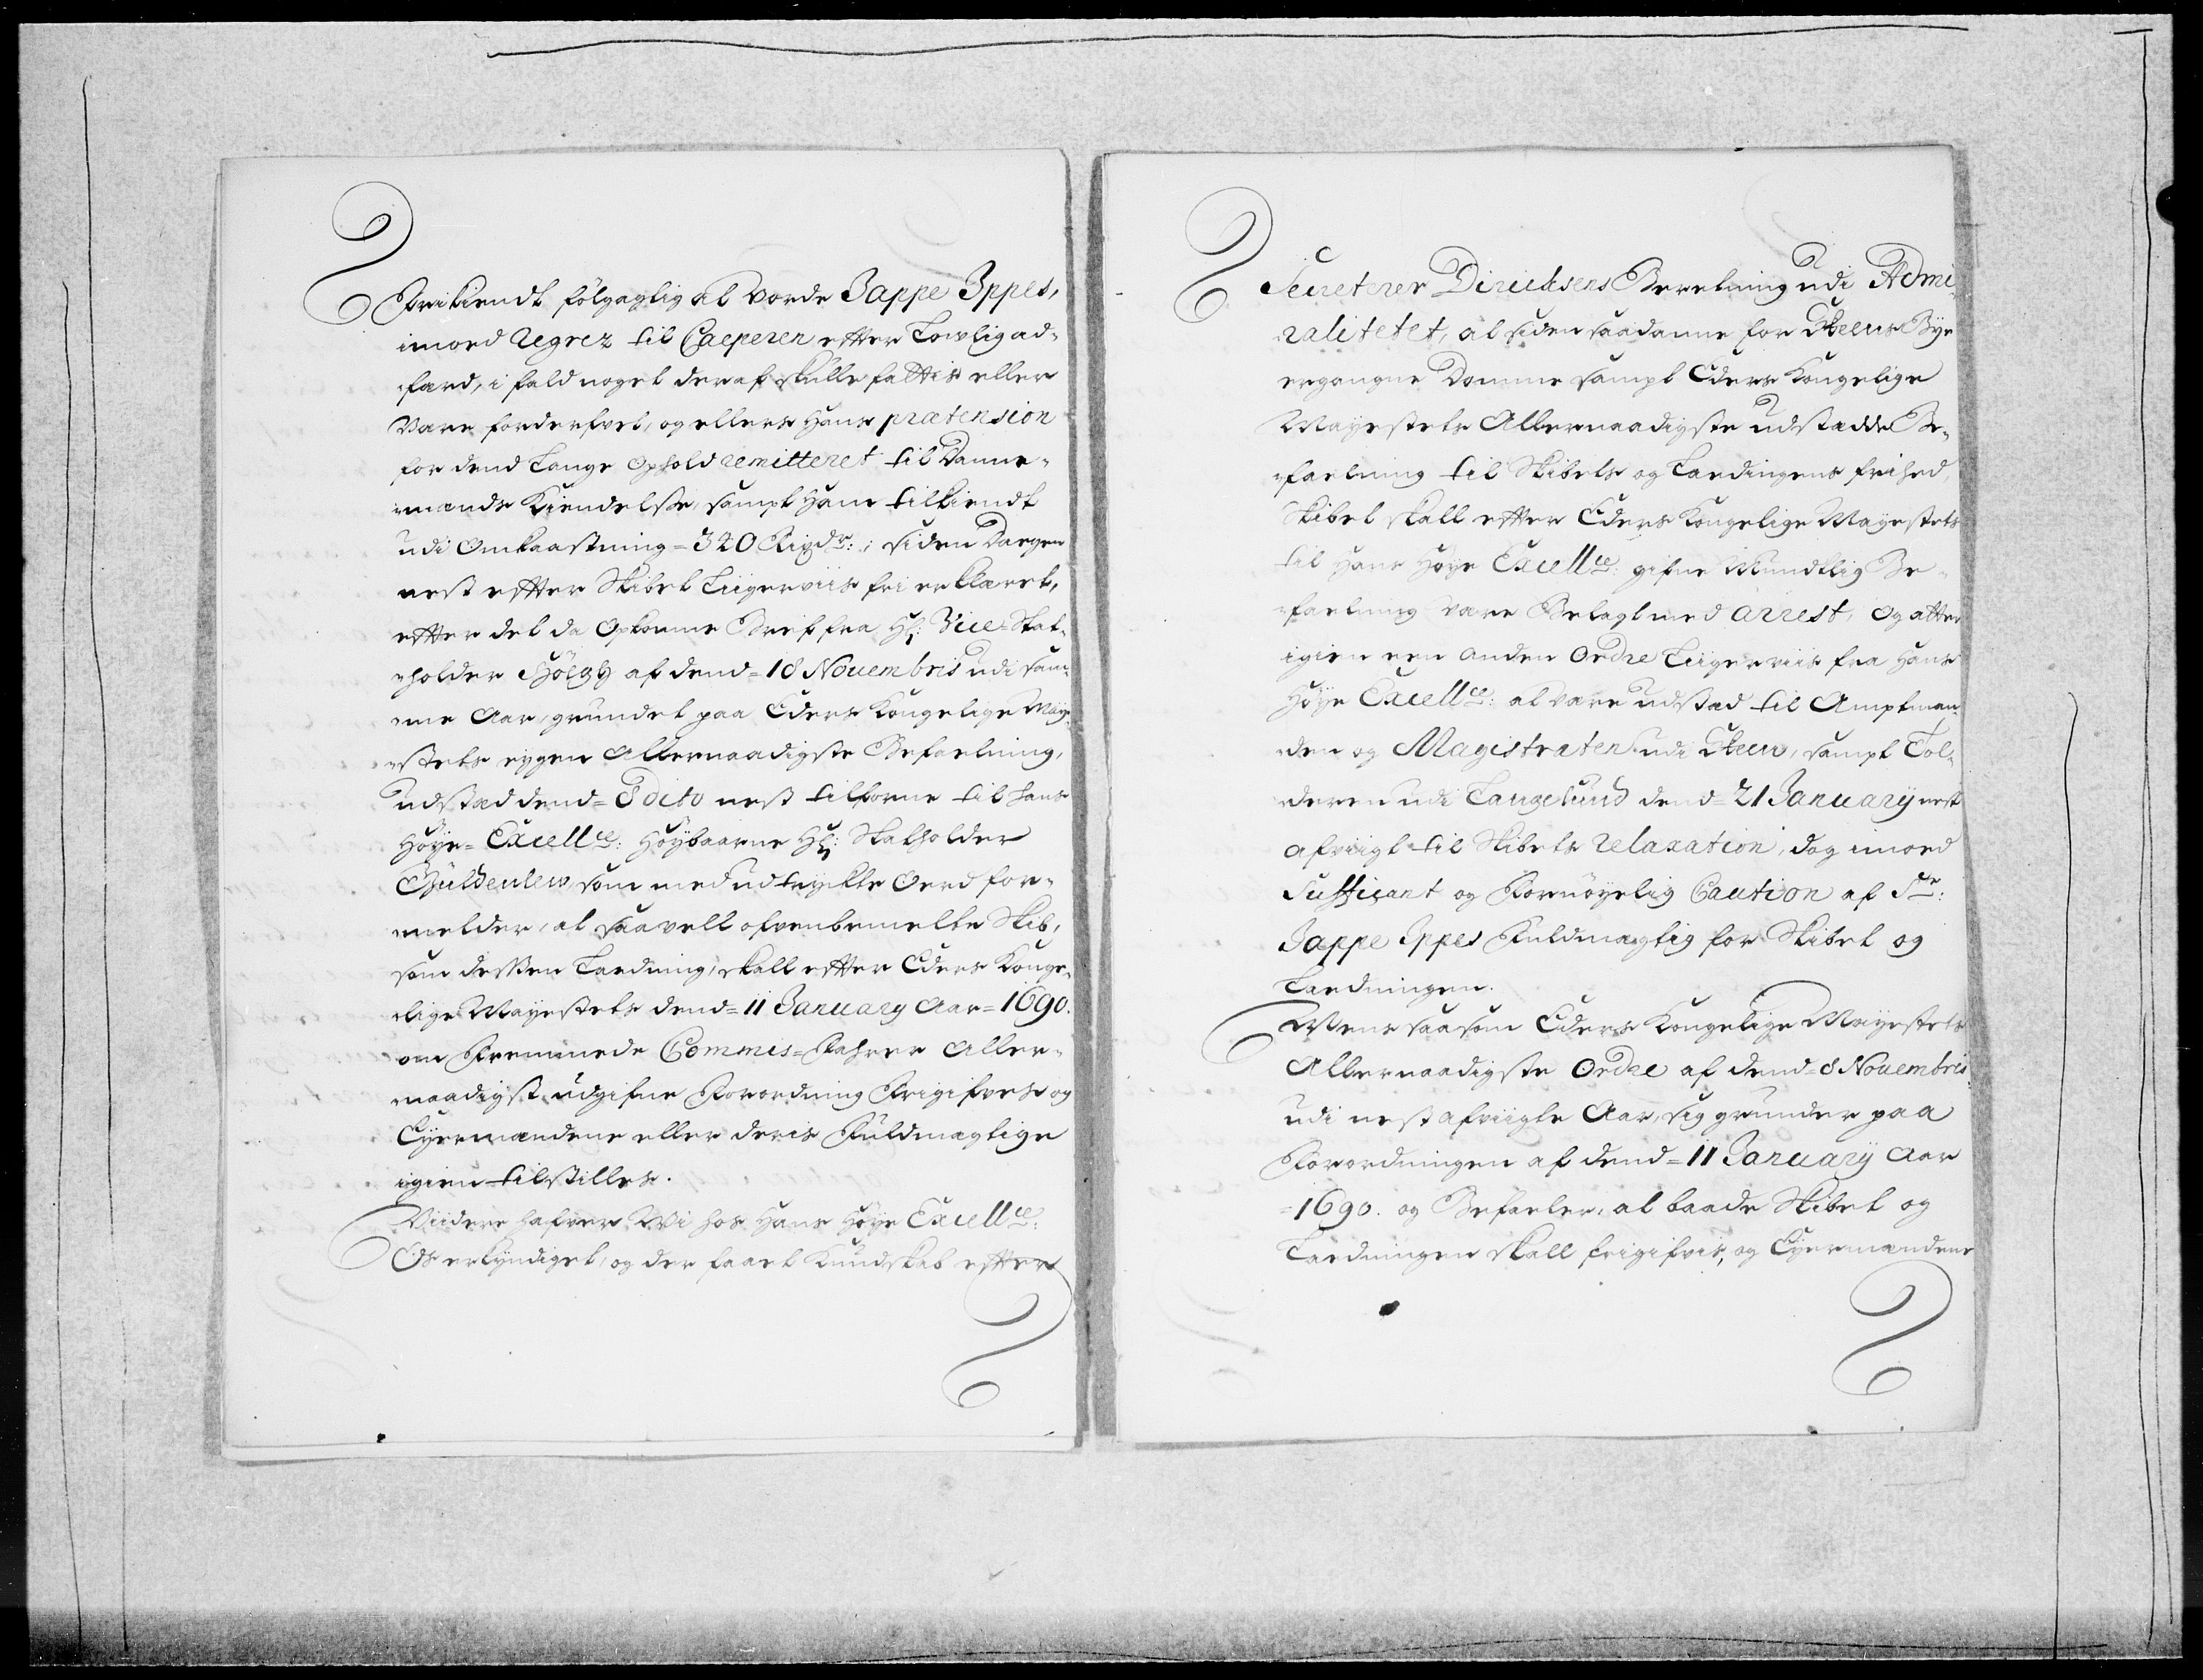 Frikiendt følgagtig at vorde Jappe Ippes,
imoed Regrez til Caeperen efter Lowlig ad¬
færd, i fald noget deraf skulle fattis eller
Være forderfvet, og ellers hans prætension
for dend Lange Ophold remitteret til Danne¬
mænds Kiendelse, sampt ham tilkiendt
udi Omkaastning = 320 Rigdr:; siden Dagen
nest efter Skibet Liigerviis fri erklæret,
efter det da Opkomne Bref fra Hr: Vice-Stat¬
holder Højegh af dend = 18 Novembris udi sam¬
me Aar, grundet paa Eders Kongelige Maye¬
stets eygen Allernaadigste Befaelning,
udstæd dend = 8 dito nest tilforne til hans
Høye = Excellce: Høybaarne Hr: Statholder
Gyldenlew, som med udtryckte Oerd for¬
melder, at saavell ofvenbemelte Skib,
som dessen Laedning, skall efter Eders Konge¬
lige Mayestets dend = 11 January Aar = 1690.
om Fremmede Commis-Fahrer Aller¬
naadigst udgifne Forordning Frigifves og
Eyermændene eller deris Fuldmægtige
igien tilstilles.
Viidere hafver Wi hos Hans Høye Excellce:
Os erkyndiget, og der faaet Kundskab efter
Secreterer Diricksens Beretning udi Admi¬
ralitetet, at siden saadanne for Skeens Bye
ergangne Domme sampt Eders Kongelige
Mayestets Allernaadigste udstædde Be¬
faelning til Skibets og Laedingens frihed,
Skibet skall efter Eders Kongelige Mayestets
til Hans Høye Excellce: gifne Mundtlig Be¬
faelning være Belagt med arrest, og atter
igien een anden Ordre Liigerviis fra Hans
Høye Excellce: at være udstæd til Amptman¬
den og Magistraten udi Skeen, sampt Tol¬
deren udi Langesund dend = 21 January nest
afviigt til Skibets relaxation, dog imoed
Sufficant og Fornøyelig Caution af Sr:
Jappe Ippes Fuldmægtig for Skibet og
Laedningen.
Mens saasom Eders Kongelige Mayestets
Allernaadigste Ordre af dend = 8 Novembris
udi nest afviigte Aar, sig grunder paa
Forordningen af dend = 11 January Aar
= 1690. og Befaeler, at baade Skibet og
Laedningen skall frigifvis, og Eyermændene